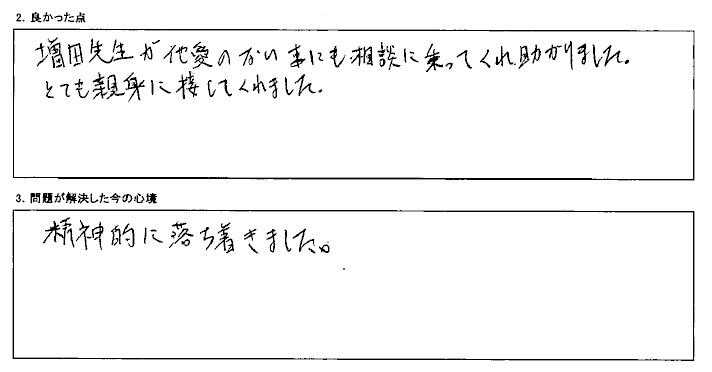 2. 良かった点
増田先生が他愛のない事にも相談に乗ってくれ助かりました。
とても親身に接してくれました。
3. 問題が解決した今の心境
精神的に落ち着きました。